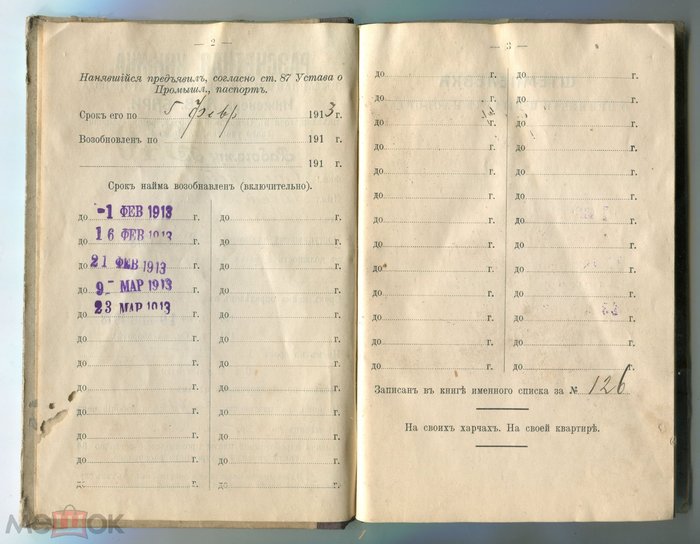 — 2 —
Нанявшійся предъявилъ, согласно ст. 87 Устава о
Промышл., паспортъ.
Срокъ его по 5 Февр 1913 г.
Возобновленъ по 191 г.
191 г.
Срокъ найма возобнавленъ (включительно).
до -1 ФЕВ 1913 г. до г.
до 16 ФЕВ 1913 г. до г.
до 21 ФЕВ 1913 г. до г.
до 9- МАР 1913 г. до г.
до 23 МАР 1913 г. до г.
до г. до г.
до г. до г.
до г. до г.
до г. до г.
до г. до г.
до г. до г.
до г. до г.
— 3 —
до г. до г.
до г. до г.
до г. до г.
до г. до г.
до г. до г.
до г. до г.
до г. до г.
до г. до г.
до г. до г.
до г. до г.
до г. до г.
до г. до г.
до г. до г.
Записанъ въ книгѣ именного списка за № 126
На своихъ харчахъ. На своей квартирѣ.
МЕШОК